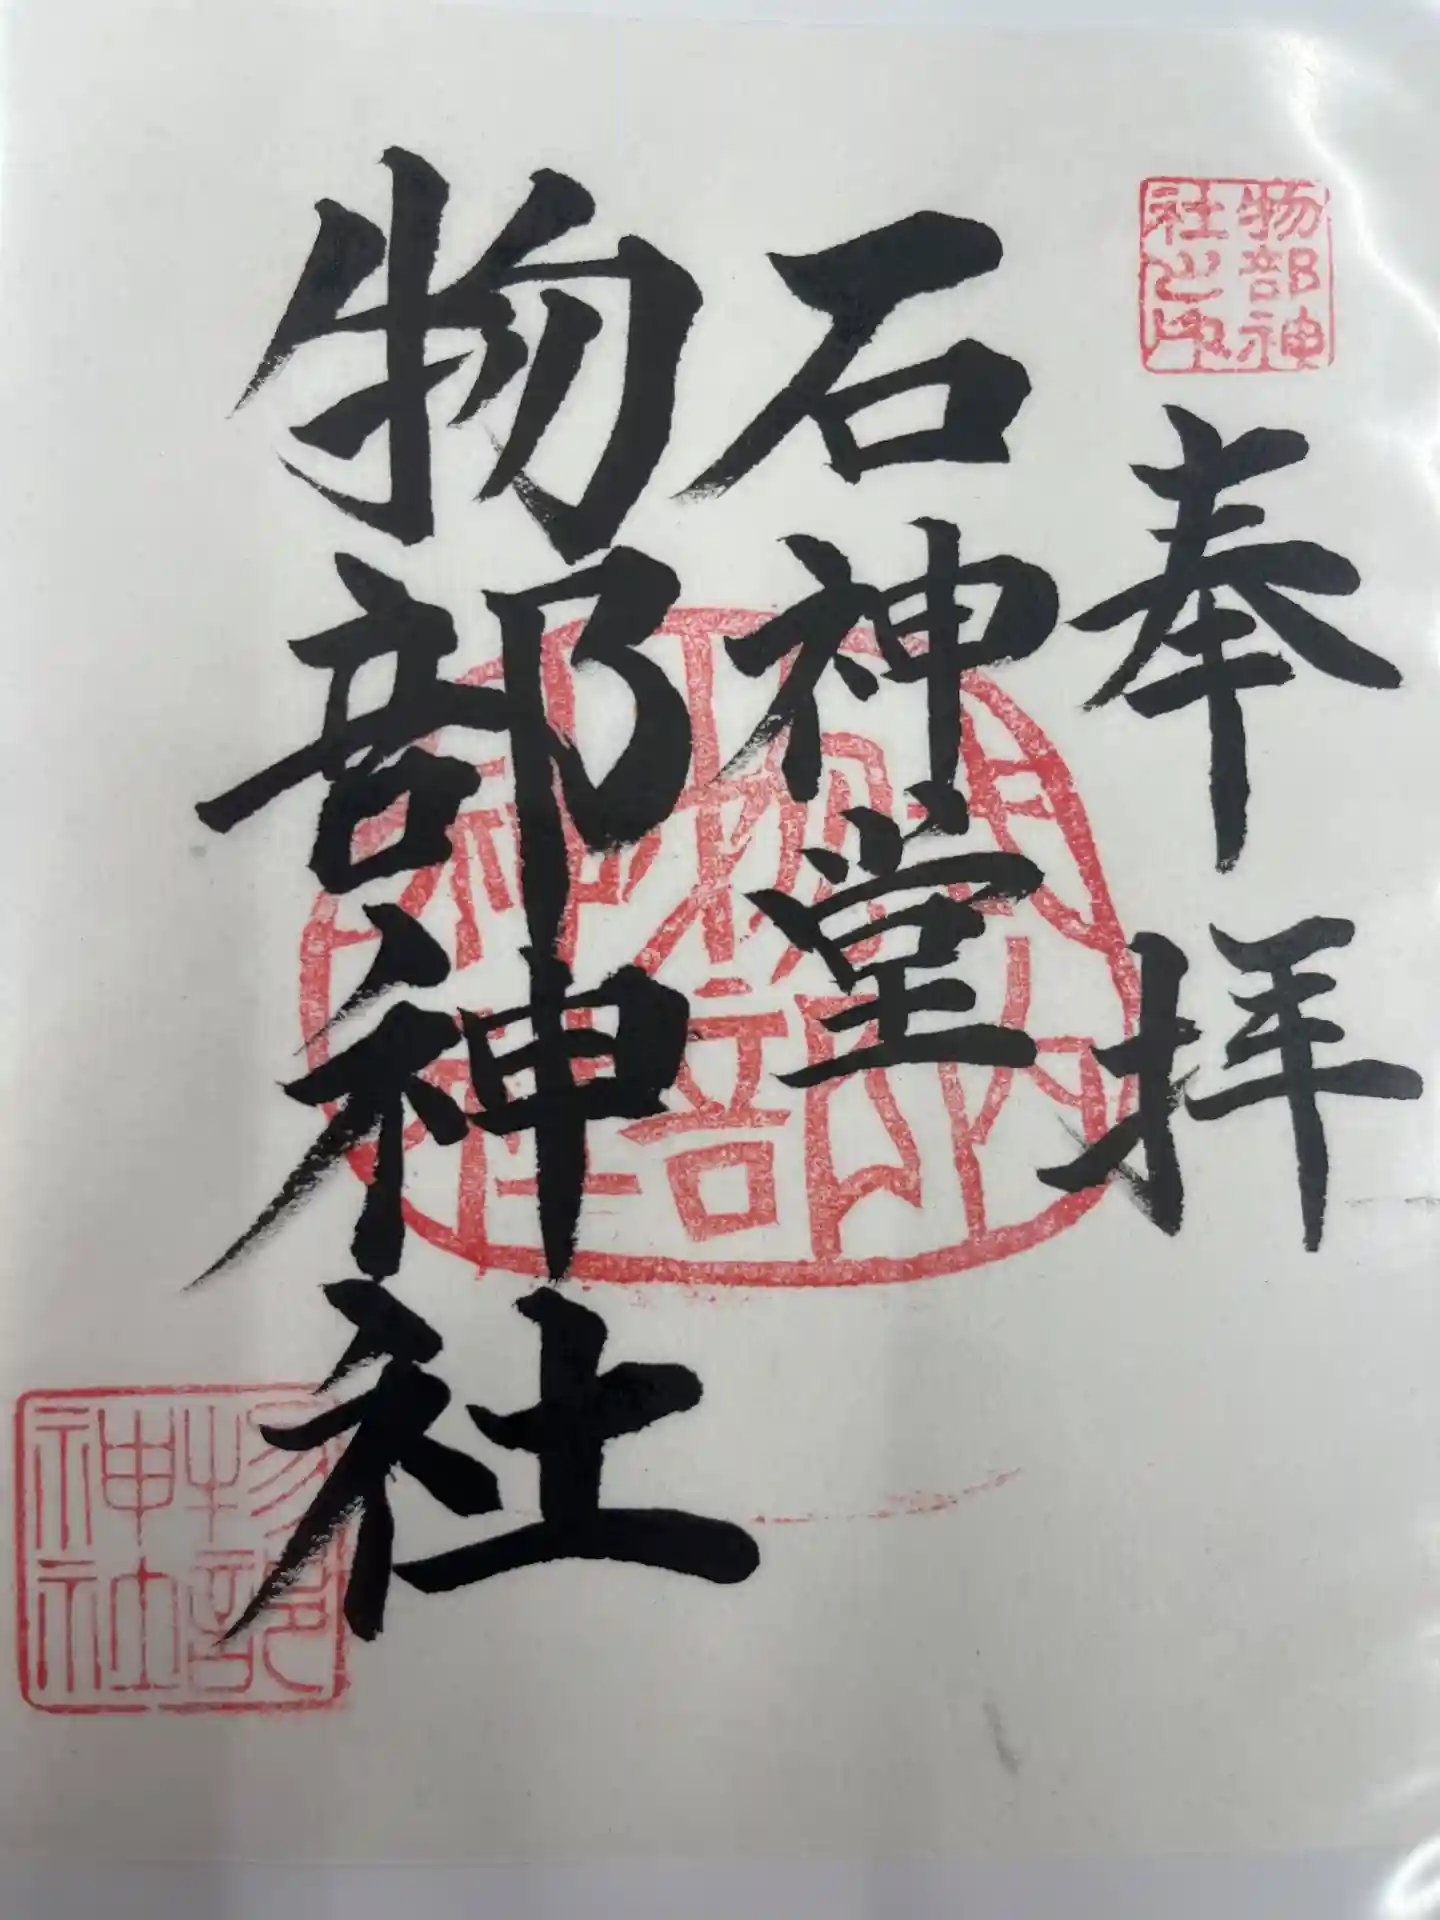 物部神
社之印
奉拝
石神堂
物部神社
物部
神社